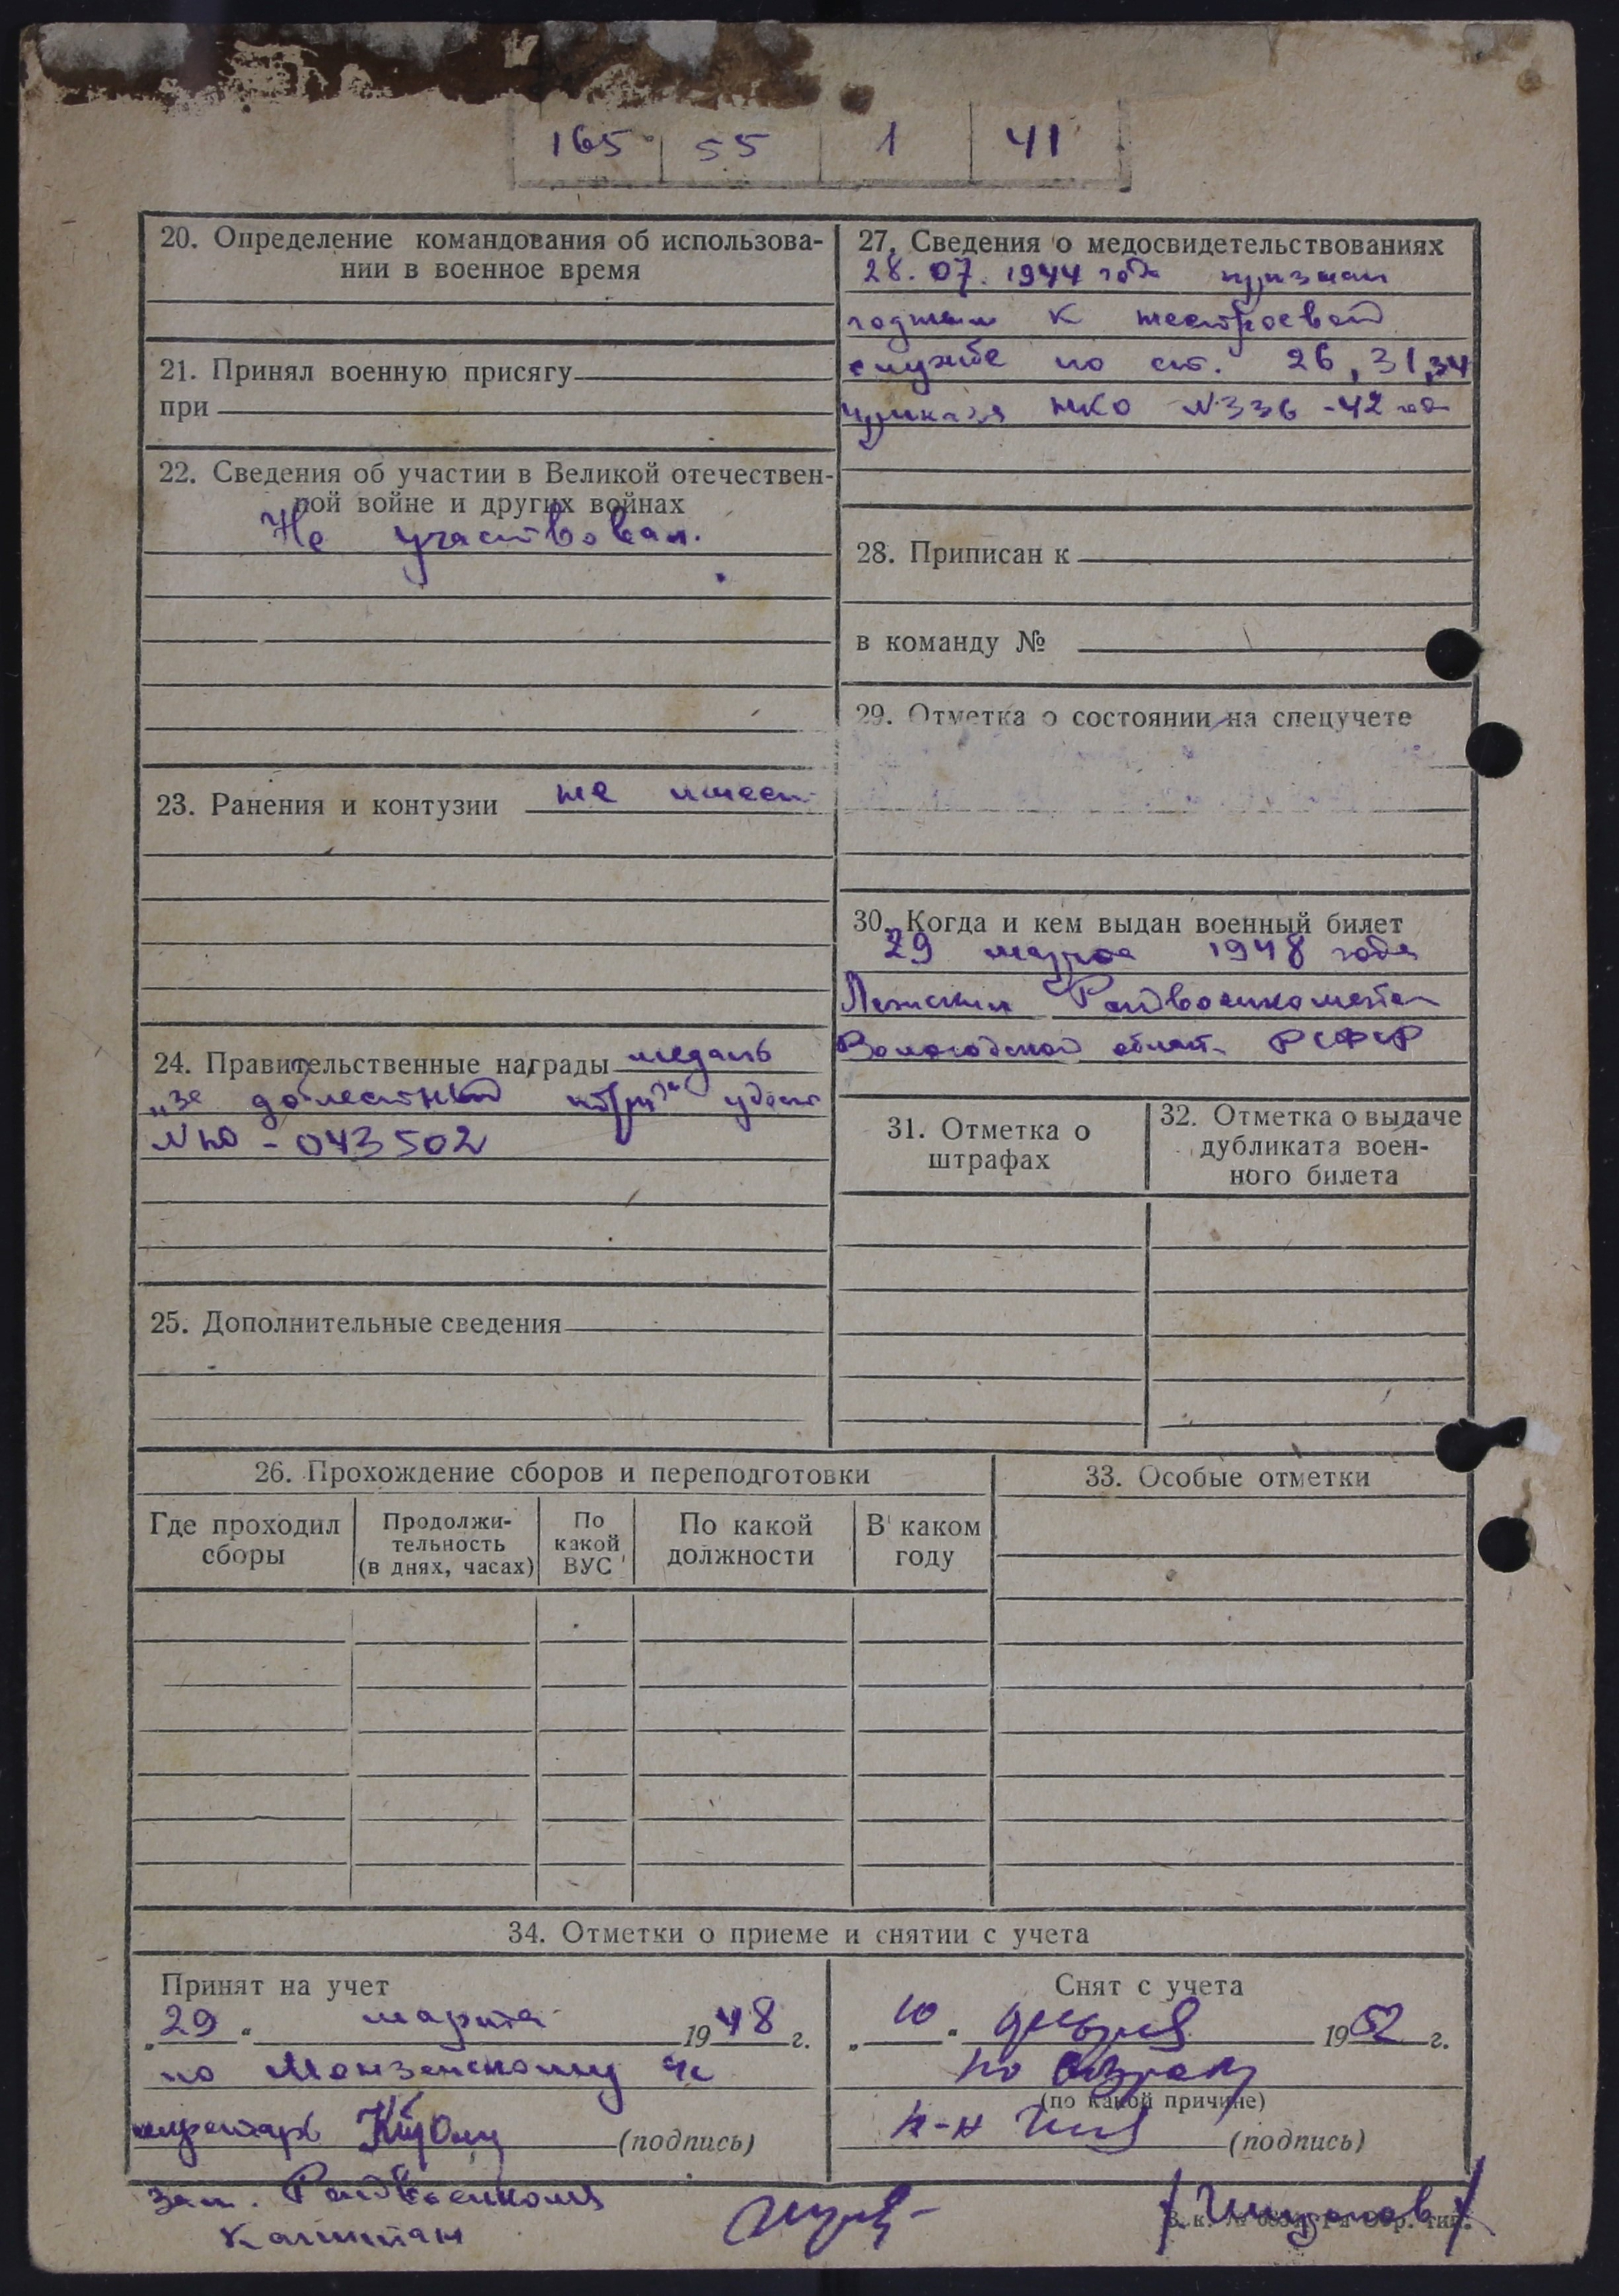 165 55 1 41
20. Определение командования об использова-
нии в военное время
21. Принял военную присягу
при
22. Сведения об участии в Великой отечествен-
ной войне и других войнах
Не участвовал.
23. Ранения и контузии не имеет
24. Правительственные награды медаль
„за доблестный труд" удост
№ Ю - 043502
25. Дополнительные сведения
27. Сведения о медосвидетельствованиях
28.07.1944 года признан
годным к нестроевой
службе по ст. 26, 31, 34
приказа НКО №336 -42 года
28. Приписан к
в команду №
29. Отметка о состоянии на спецучете
30. Когда и кем выдан военный билет
29 марта 1948 года
Лежским Райвоенкоматом
Вологодской област. РСФСР
31. Отметка о
штрафах
32. Отметка о выдаче
дубликата воен-
ного билета
26. Прохождение сборов и переподготовки
Где проходил
сборы
Продолжи-
тельность
(в днях, часах)
По
какой
ВУС
По какой
должности
В каком
году
33. Особые отметки
34. Отметки о приеме и снятии с учета
Принят на учет
„29" марта 1948 г.
по Монзенскому
секретарь (подпись)
Снят с учета
„10" февраля 1952 г.
по возрасту
(по какой причине)
к-н (подпись)
Зам. Райвоенкома
Капитан